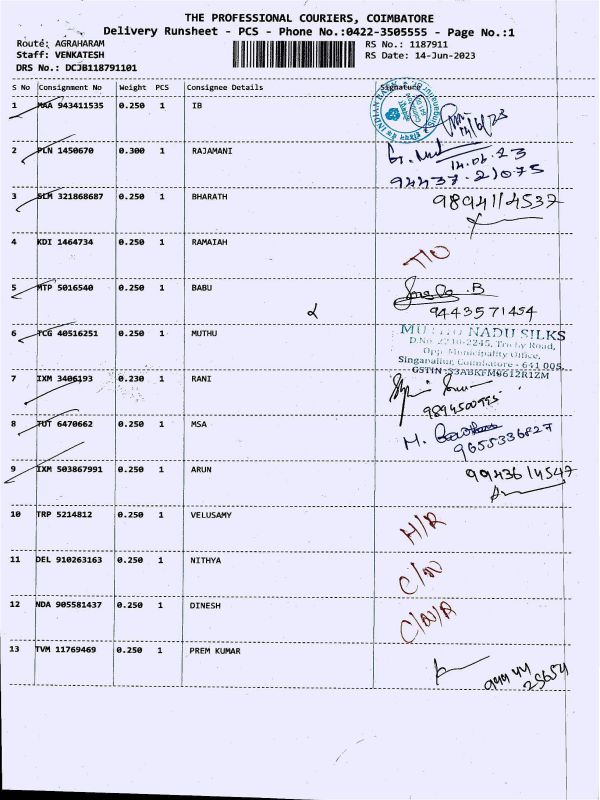 THE PROFESSIONAL COURIERS, COIMBATORE
Delivery Runsheet - PCS - Phone No.:0422-3505555 - Page No.:1
Route: AGRAHARAM RS No.: 1187911
Staff: VENKATESH RS Date: 14-Jun-2023
DRS No.: DCJB118791101
S No Consignment No Weight PCS Consignee Details Signature
1 MAA 943411535 0.250 1 IB
INDIAN BANK
14/6/23
2 PLN 1450670 0.300 1 RAJAMANI
14.06.23
94437-21075
3 SLM 321868687 0.250 1 BHARATH 9894114537
4 KDI 1464734 0.250 1 RAMAIAH
5 MTP 5016540 0.250 1 BABU B
9443571454
6 TCG 40516251 0.250 1 MUTHU
NADU SILKS
D.No. 2240-2245, Trichy Road,
Opp. Municipality Office,
Singanallur, Coimbatore - 641 005.
GSTIN :33ABKFM9612R1ZM
7 IXM 3406193 0.230 1 RANI
8 TUT 6470662 0.250 1 MSA M.
9655336827
9 IXM 503867991 0.250 1 ARUN 9943614547
10 TRP 5214812 0.250 1 VELUSAMY H/R
11 DEL 910263163 0.250 1 NITHYA C/N
12 NDA 905581437 0.250 1 DINESH C/N/R
13 TVM 11769469 0.250 1 PREM KUMAR
94444
25654